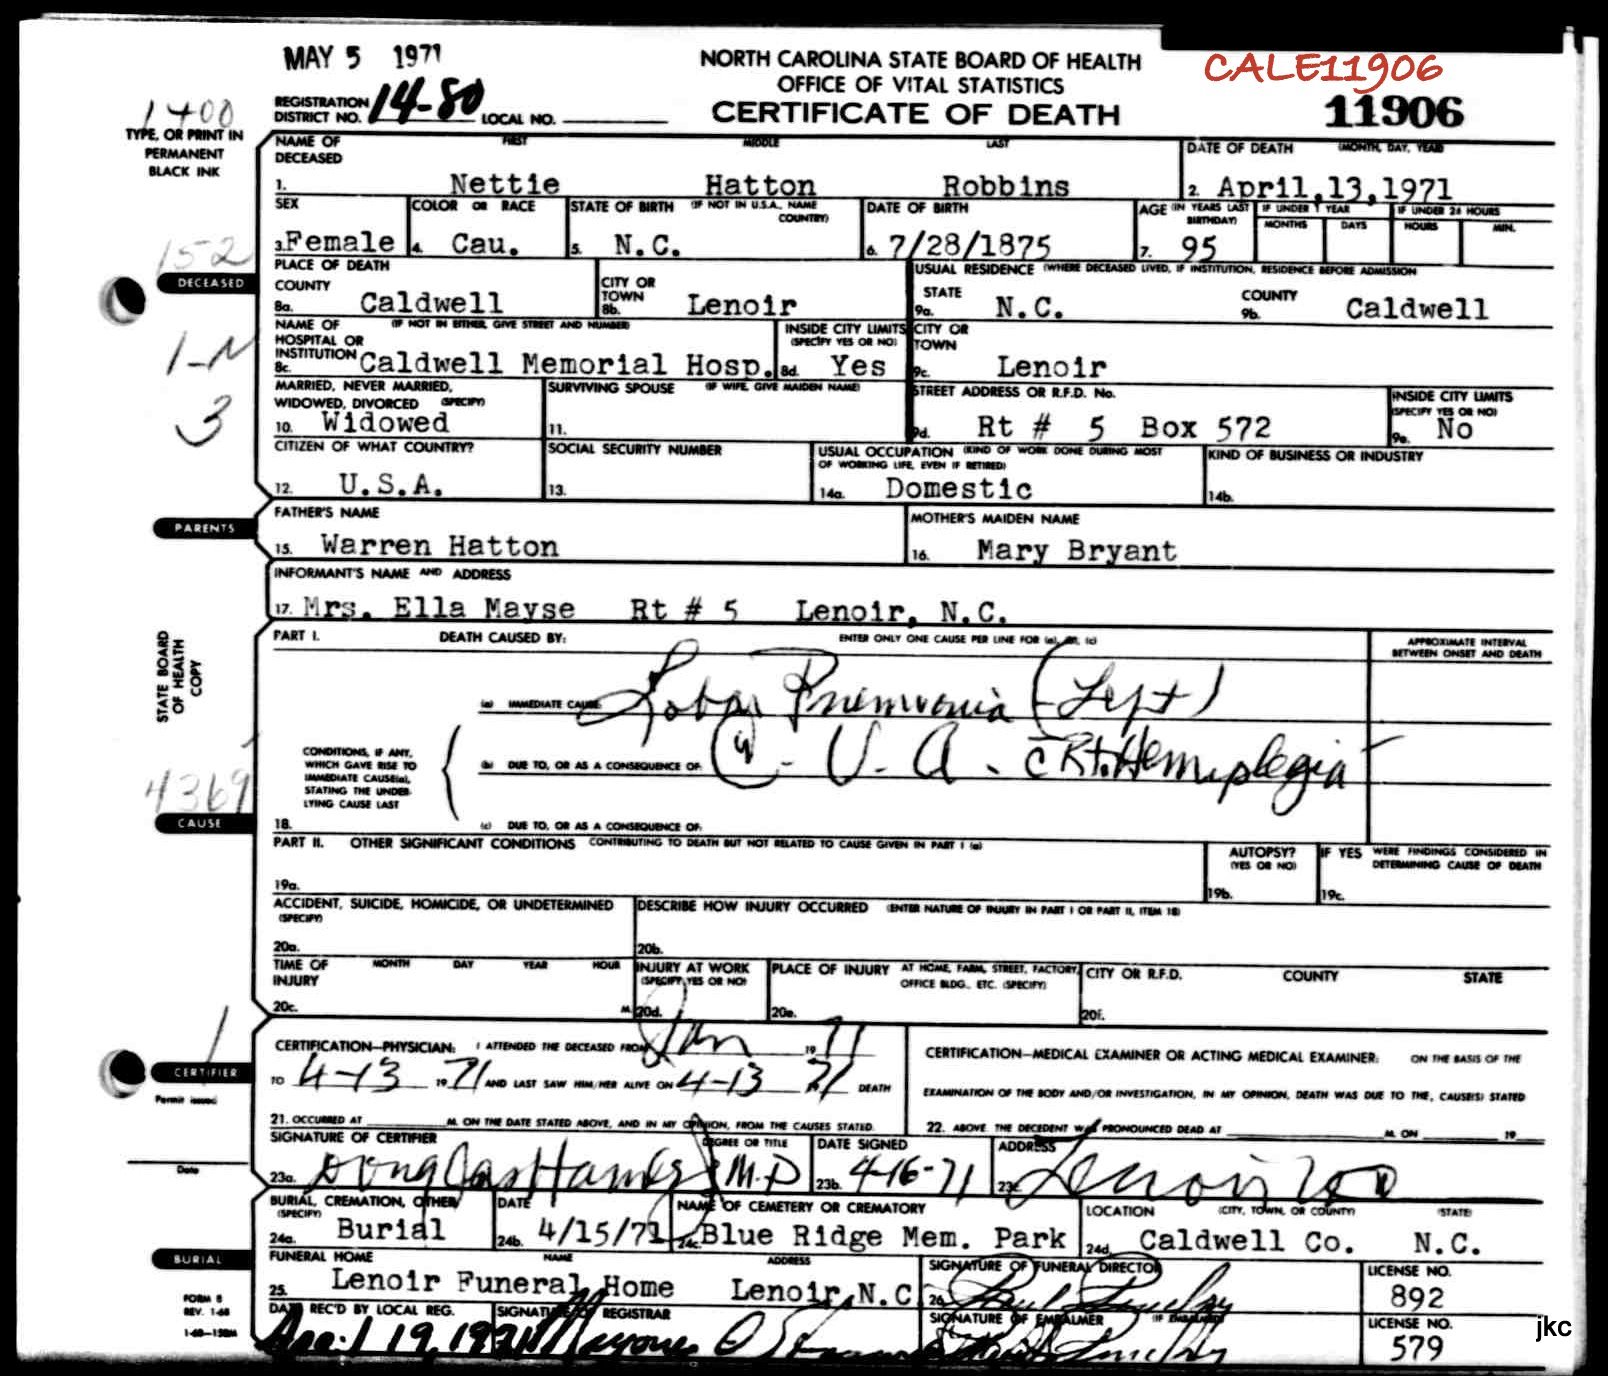 MAY 5 1971
NORTH CAROLINA STATE BOARD OF HEALTH
OFFICE OF VITAL STATISTICS
CERTIFICATE OF DEATH
CALE11906
11906
1400
REGISTRATION DISTRICT NO. 14-80 LOCAL NO.
TYPE, OR PRINT IN
PERMANENT
BLACK INK
NAME OF DECEASED FIRST MIDDLE LAST
1. Nettie Hatton Robbins
DATE OF DEATH (MONTH, DAY, YEAR)
2. April,13,1971
SEX
3. Female
COLOR OR RACE
4. Cau.
STATE OF BIRTH (IF NOT IN U.S.A., NAME COUNTRY)
5. N.C.
DATE OF BIRTH
6. 7/28/1875
AGE (IN YEARS LAST BIRTHDAY)
7. 95
IF UNDER 1 YEAR
MONTHS DAYS
IF UNDER 24 HOURS
HOURS MIN.
152
DECEASED
PLACE OF DEATH
COUNTY
8a. Caldwell
CITY OR TOWN
8b. Lenoir
USUAL RESIDENCE (WHERE DECEASED LIVED, IF INSTITUTION, RESIDENCE BEFORE ADMISSION
STATE
9a. N.C.
COUNTY
9b. Caldwell
1-N
NAME OF HOSPITAL OR INSTITUTION (IF NOT IN EITHER, GIVE STREET AND NUMBER)
8c. Caldwell Memorial Hosp.
INSIDE CITY LIMITS (SPECIFY YES OR NO)
8d. Yes
CITY OR TOWN
9c. Lenoir
3
MARRIED, NEVER MARRIED, WIDOWED, DIVORCED (SPECIFY)
10. Widowed
SURVIVING SPOUSE (IF WIFE, GIVE MAIDEN NAME)
11.
STREET ADDRESS OR R.F.D. No.
9d. Rt # 5 Box 572
INSIDE CITY LIMITS (SPECIFY YES OR NO)
9e. No
CITIZEN OF WHAT COUNTRY?
12. U.S.A.
SOCIAL SECURITY NUMBER
13.
USUAL OCCUPATION (KIND OF WORK DONE DURING MOST OF WORKING LIFE, EVEN IF RETIRED)
14a. Domestic
KIND OF BUSINESS OR INDUSTRY
14b.
PARENTS
FATHER'S NAME
15. Warren Hatton
MOTHER'S MAIDEN NAME
16. Mary Bryant
INFORMANT'S NAME AND ADDRESS
17. Mrs. Ella Mayse Rt # 5 Lenoir, N.C.
STATE BOARD
OF HEALTH
COPY
PART I. DEATH CAUSED BY: ENTER ONLY ONE CAUSE PER LINE FOR (a), (b), (c)
APPROXIMATE INTERVAL BETWEEN ONSET AND DEATH
(a) IMMEDIATE CAUSE: Lobar Pnemvonia (Left)
CONDITIONS, IF ANY,
WHICH GAVE RISE TO
IMMEDIATE CAUSE(a),
STATING THE UNDER-
LYING CAUSE LAST
(b) DUE TO, OR AS A CONSEQUENCE OF: C. V. A. c Rt. Hemiplegia
4369
CAUSE
18. (c) DUE TO, OR AS A CONSEQUENCE OF:
PART II. OTHER SIGNIFICANT CONDITIONS CONTRIBUTING TO DEATH BUT NOT RELATED TO CAUSE GIVEN IN PART I (a)
19a.
AUTOPSY? (YES OR NO)
19b.
IF YES WERE FINDINGS CONSIDERED IN DETERMINING CAUSE OF DEATH
19c.
ACCIDENT, SUICIDE, HOMICIDE, OR UNDETERMINED (SPECIFY)
20a.
DESCRIBE HOW INJURY OCCURRED (ENTER NATURE OF INJURY IN PART I OR PART II, ITEM 18)
20b.
TIME OF INJURY MONTH DAY YEAR HOUR
20c. M.
INJURY AT WORK (SPECIFY YES OR NO)
20d.
PLACE OF INJURY AT HOME, FARM, STREET, FACTORY, OFFICE BLDG., ETC. (SPECIFY)
20e.
CITY OR R.F.D. COUNTY STATE
20f.
1
CERTIFIER
Permit issued
Date
CERTIFICATION—PHYSICIAN: I ATTENDED THE DECEASED FROM Jan 19 71
TO 4-13 19 71 AND LAST SAW HIM/HER ALIVE ON 4-13 71 DEATH
21. OCCURRED AT M. ON THE DATE STATED ABOVE, AND IN MY OPINION, FROM THE CAUSES STATED.
CERTIFICATION—MEDICAL EXAMINER OR ACTING MEDICAL EXAMINER: ON THE BASIS OF THE
EXAMINATION OF THE BODY AND/OR INVESTIGATION, IN MY OPINION, DEATH WAS DUE TO THE, CAUSE(S) STATED
22. ABOVE. THE DECEDENT WAS PRONOUNCED DEAD AT M. ON 19
SIGNATURE OF CERTIFIER DEGREE OR TITLE
23a. Douglas Hamer M.D
DATE SIGNED
23b. 4-16-71
ADDRESS
23c. Lenoir
BURIAL, CREMATION, OTHER (SPECIFY)
24a. Burial
DATE
24b. 4/15/71
NAME OF CEMETERY OR CREMATORY
24c. Blue Ridge Mem. Park
LOCATION (CITY, TOWN, OR COUNTY) (STATE)
24d. Caldwell Co. N.C.
BURIAL
FUNERAL HOME NAME ADDRESS
25. Lenoir Funeral Home Lenoir,N.C
SIGNATURE OF FUNERAL DIRECTOR
26.
LICENSE NO.
892
FORM 8
REV. 1-68
1-68—150M
DATE REC'D BY LOCAL REG.
April 19, 1971
SIGNATURE OF REGISTRAR
SIGNATURE OF EMBALMER (IF EMBALMED)
LICENSE NO.
579
jkc